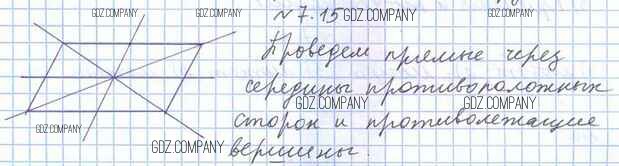 №7.15
Проведем прямые через
середины противоположных
сторон и противолежащие
вершины.
GDZ.COMPANY
GDZ.COMPANY
GDZ.COMPANY
GDZ.COMPANY
GDZ.COMPANY
GDZ.COMPANY
GDZ.COMPANY